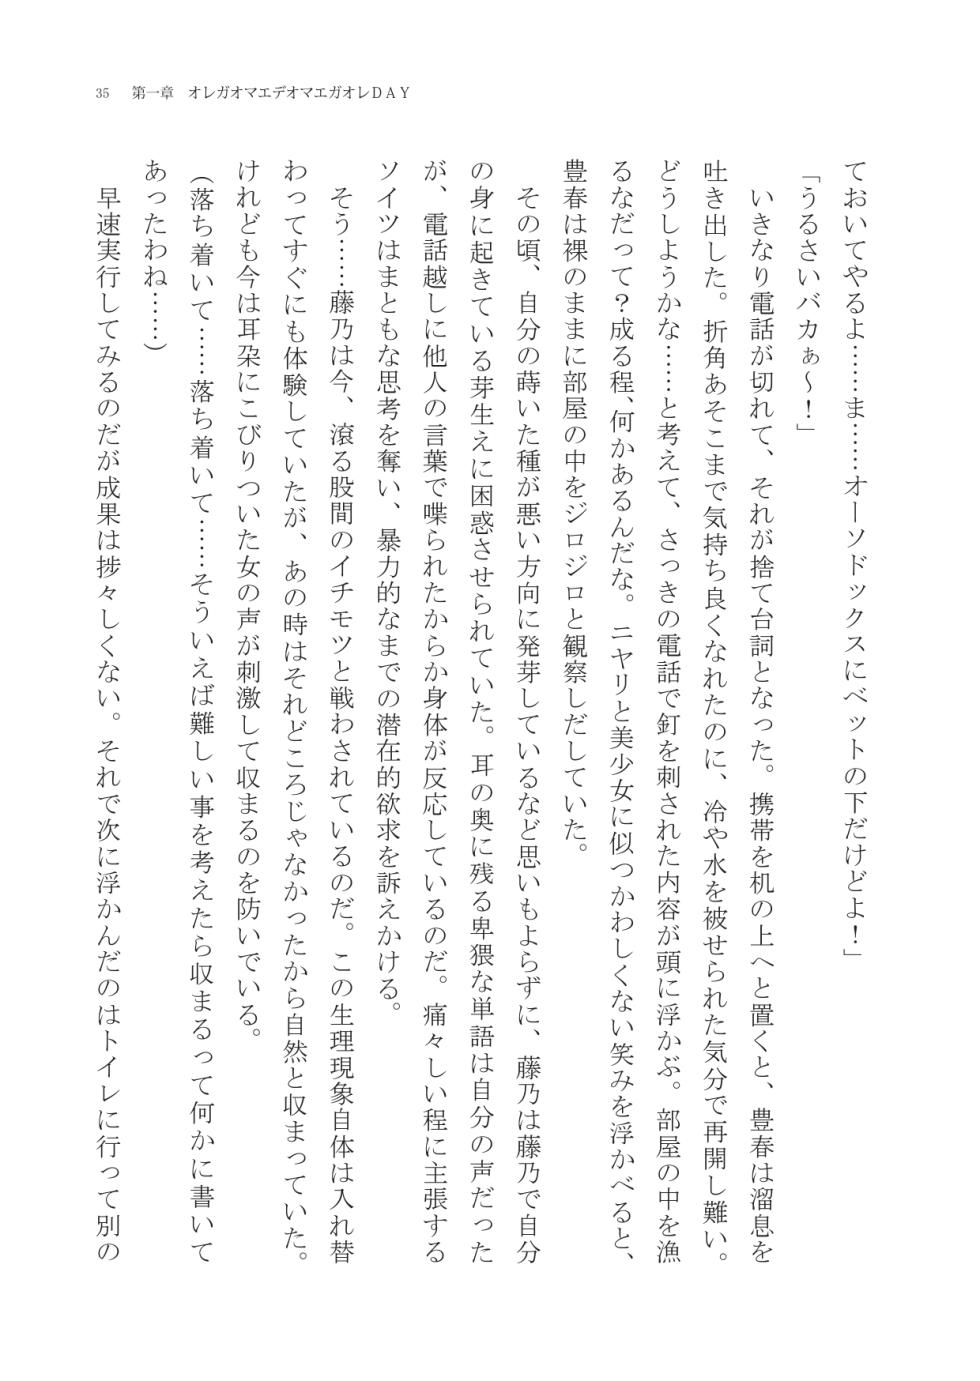 35　第一章　オレガオマエデオマエガオレＤＡＹ
ておいてやるよ……ま……オーソドックスにベットの下だけどよ！」
「うるさいバカぁ～！」
　いきなり電話が切れて、それが捨て台詞となった。携帯を机の上へと置くと、豊春は溜息を
吐き出した。折角あそこまで気持ち良くなれたのに、冷や水を被せられた気分で再開し難い。
どうしようかな……と考えて、さっきの電話で釘を刺された内容が頭に浮かぶ。部屋の中を漁
るなだって？成る程、何かあるんだな。ニヤリと美少女に似つかわしくない笑みを浮かべると、
豊春は裸のままに部屋の中をジロジロと観察しだしていた。
　その頃、自分の蒔いた種が悪い方向に発芽しているなど思いもよらずに、藤乃は藤乃で自分
の身に起きている芽生えに困惑させられていた。耳の奥に残る卑猥な単語は自分の声だった
が、電話越しに他人の言葉で喋られたからか身体が反応しているのだ。痛々しい程に主張する
ソイツはまともな思考を奪い、暴力的なまでの潜在的欲求を訴えかける。
　そう……藤乃は今、滾る股間のイチモツと戦わされているのだ。この生理現象自体は入れ替
わってすぐにも体験していたが、あの時はそれどころじゃなかったから自然と収まっていた。
けれども今は耳朶にこびりついた女の声が刺激して収まるのを防いでいる。
（落ち着いて……落ち着いて……そういえば難しい事を考えたら収まるって何かに書いて
あったわね……）
　早速実行してみるのだが成果は捗々しくない。それで次に浮かんだのはトイレに行って別の